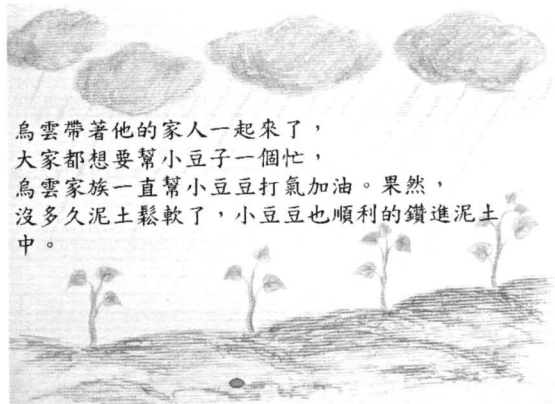 烏雲帶著他的家人一起來了，
大家都想要幫小豆子一個忙，
烏雲家族一直幫小豆豆打氣加油。果然，
沒多久泥土鬆軟了，小豆豆也順利的鑽進泥土
中。